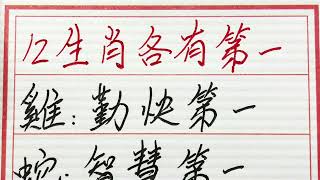 12生肖各有第一
雞：勤快第一
蛇：智慧第一